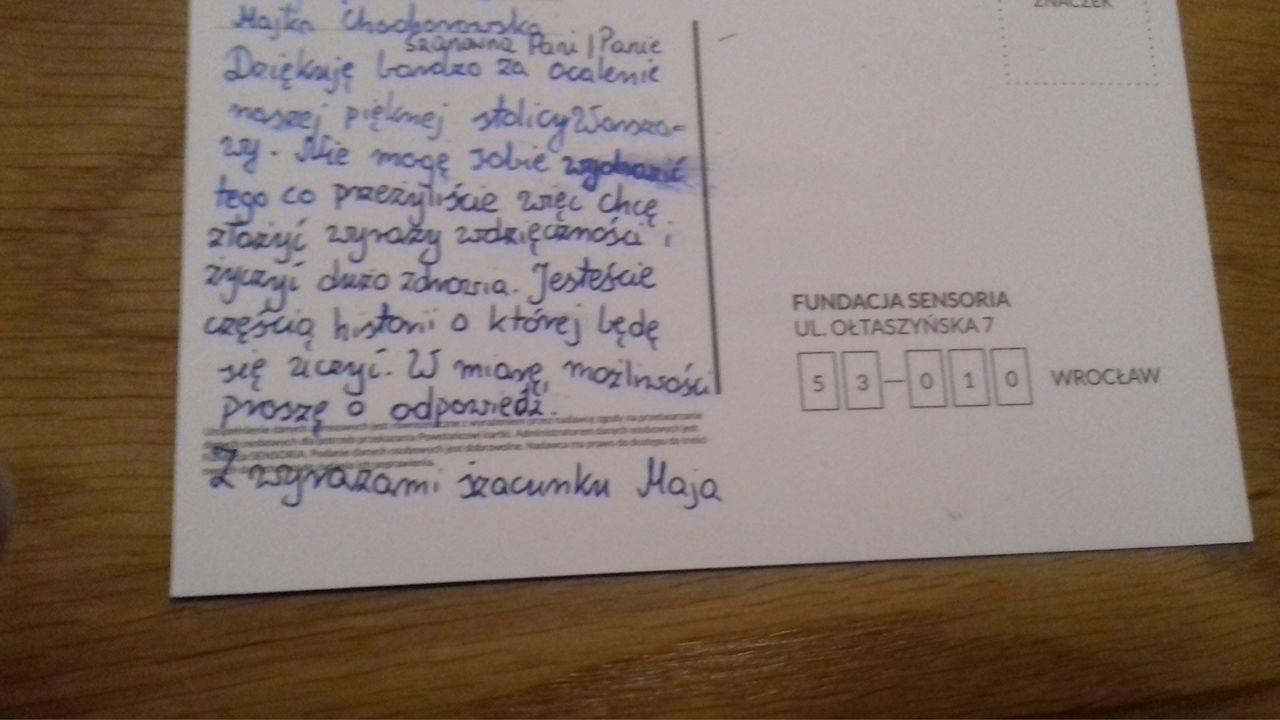 Majka Chochorowska
Szanowna Pani / Panie
Dziękuję bardzo za ocalenie
naszej pięknej stolicy Warsza-
wy. Nie mogę sobie wyobrazić
tego co przeżyliście więc chcę
złożyć wyrazy wdzięczności i
życzyć dużo zdrowia. Jesteście
częścią historii o której będę
się uczyć. W miarę możliwości
proszę o odpowiedź.
Z wyrazami szacunku Maja
ZNACZEK
FUNDACJA SENSORIA
UL. OŁTASZYŃSKA 7
53-010 WROCŁAW